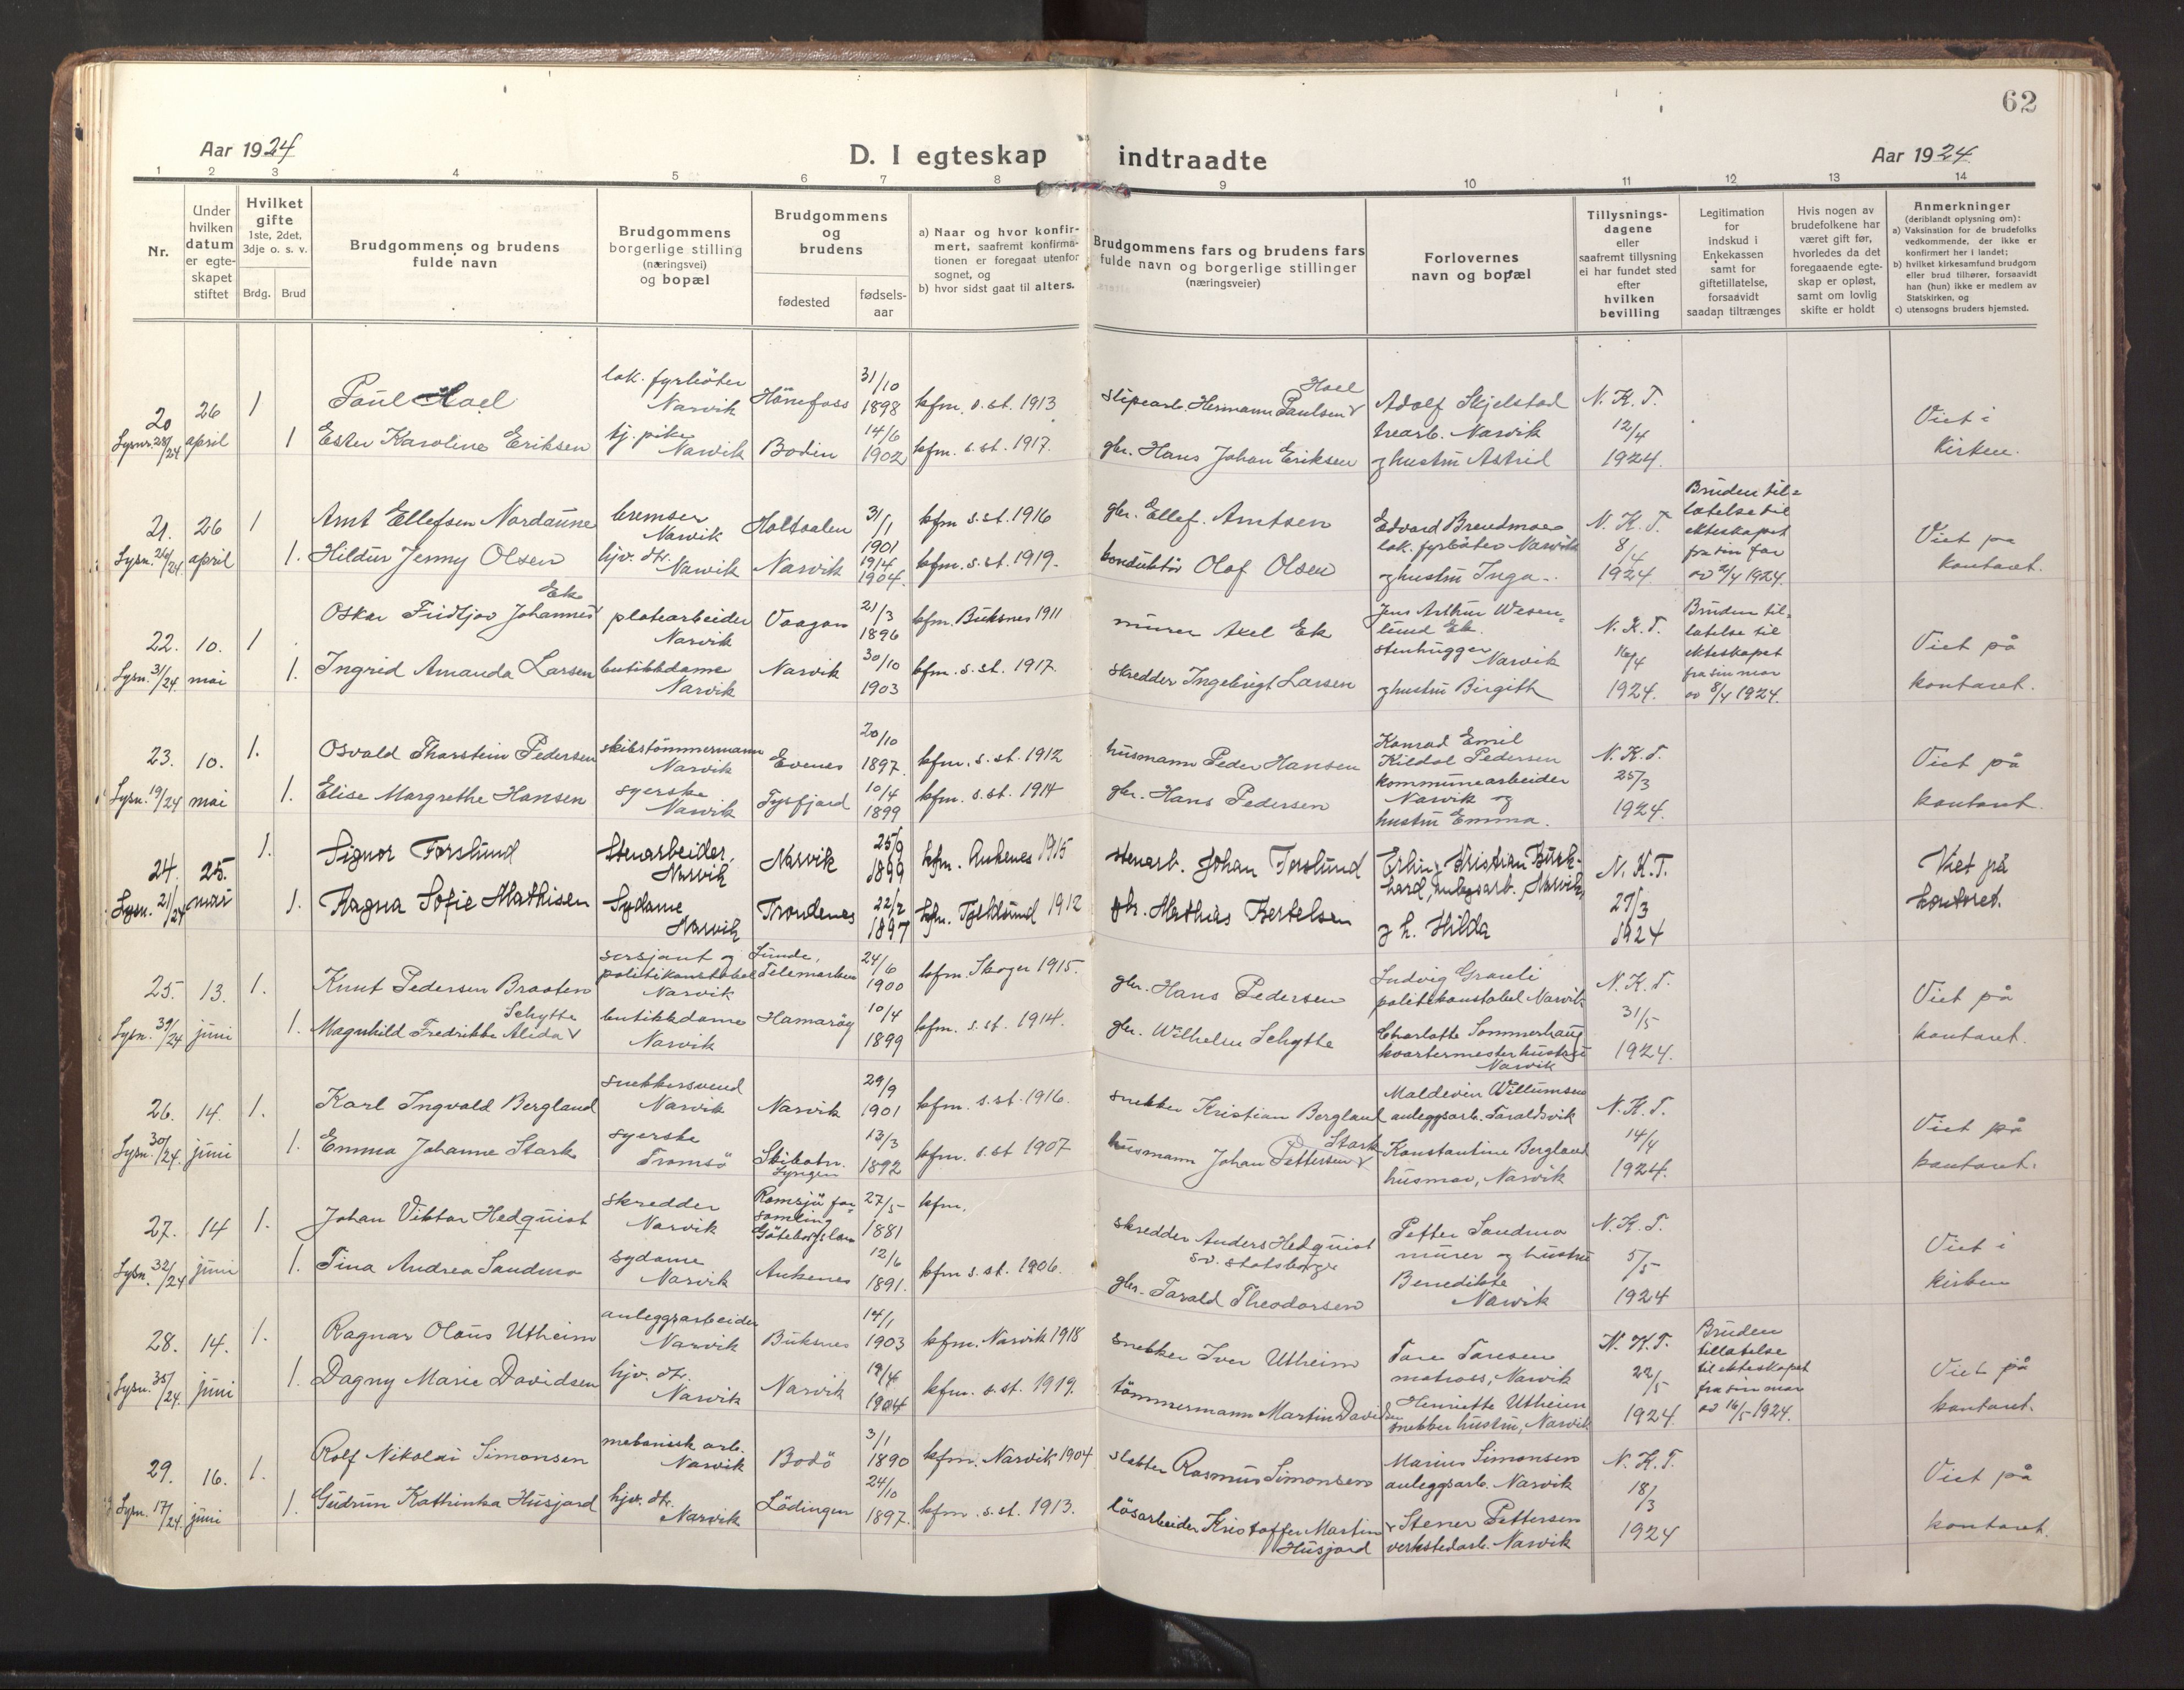 62
Aar 1924
D. I egteskap indtraadte
Aar 1924
1 2 3 4 5 6 7 8 9 10 11 12 13 14
Nr.
Under
hvilken
datum
er egte-
skapet
stiftet
Hvilket
gifte
1ste, 2det,
3dje o. s. v.
Brdg. Brud
Brudgommens og brudens
fulde navn
Brudgommens
borgerlige stilling
(næringsvei)
og bopæl
Brudgommens
og
brudens
fødested
fødsels-
aar
a) Naar og hvor konfir-
mert, saafremt konfirma-
tionen er foregaat utenfor
sognet, og
b) hvor sidst gaat til alters.
Brudgommens fars og brudens fars
fulde navn og borgerlige stillinger
(næringsveier)
Forlovernes
navn og bopæl
Tillysnings-
dagene
eller
saafremt tillysning
ei har fundet sted
efter
hvilken
bevilling
Legitimation
for
indskud i
Enkekassen
samt for
giftetillatelse,
forsaavidt
saadan tiltrænges
Hvis nogen av
brudefolkene har
været gift før,
hvorledes da det
foregaaende egte-
skap er opløst,
samt om lovlig
skifte er holdt
Anmerkninger
(deriblandt oplysning om):
a) Vaksination for de brudefolks
vedkommende, der ikke er
konfirmert her i landet;
b) hvilket kirkesamfund brudgom
eller brud tilhører, forsaavidt
han (hun) ikke er medlem av
Statskirken, og
c) utensogns bruders hjemsted.
20
Lysnr. 28/24
26
april
1
1
Paul Hoel
Ester Karoline Eriksen
lok. fyrbøter
Narvik
tj. pike
Narvik
Hönefoss
Bodin
31/10
1898
14/6
1902
kfm. s. st. 1913
kfm. s. st. 1917.
Hoel
slipearb. Hermann Paulsen v
gbr. Hans Johan Eriksen
Adolf Skjelstad
trearb. Narvik
og hustru Astrid
N. K. T.
12/4
1924.
Viet i
kirken.
21.
Lysn. 26/24.
26
april
1
1.
Arnt Ellefsen Nordaune
Hildur Jenny Olsen
bremser
Narvik
hjv. dtr.
Narvik
Holtaalen
Narvik
31/1
1901
19/4
1904.
kfm s. st. 1916
kfm. s. st. 1919.
gbr. Ellef. Arntsen
konduktör Olaf Olsen
Edvard Brendmoe
lok. fyrbøter Narvik
og hustru Inga.
N. K. T.
8/4
1924
Bruden til=
latelse til
ekteskapet
fra sin far
av 2/4 1924.
Viet på
kontoret.
22.
Lysn. 31/24.
10.
mai
1
1.
Ek
Oskar Fridtjov Johannes
Ingrid Amanda Larsen
platearbeider
Narvik
butikkdame
Narvik
Vaagan
Narvik
21/3
1896
30/10
1903
kfm. Buksnes 1911
kfm. s. st. 1917.
murer Axel Ek
skredder Ingebrigt Larsen
Jens Arthur Wesen=
lund Ek.
stenhugger
Narvik
og hustru Birgith
N. K. T.
16/4
1924.
Bruden til=
latelse til
ekteskapet
fra sin mor
av 8/4 1924.
Viet på
kontoret.
23.
Lysn. 19/24
10.
mai
1.
1.
Osvald Thorstein Pedersen
Elise Margrethe Hansen
skibstömmermann
Narvik
syerske
Narvik
Evenes
Tysfjord
20/10
1897.
10/4
1899
kfm. s. st. 1912
kfm. s. st. 1914
husmann Peder Hansen
gbr. Hans Pedersen
Konrad Emil
Kildal Pedersen
kommunearbeider
Narvik og
hustru Emma.
N. K. T.
25/3
1924.
Viet på
kontoret.
24.
Lysn. 21/24
25.
mai
1.
1.
Signor Forslund
Ragna Sofie Mathisen
Stenarbeider,
Narvik
Sydame
Narvik
Narvik
Trondenes
25/9
1899
22/2
1897
kfm. Ankenes 1915
kfm. Tjeldsund 1912
stenarb. Johan Forslund
gbr. Mathias Bertelsen
Erling Kristian Burk-
hard, anlegsarb. Narvik,
og h. Hilda
N. K. T.
27/3
1924
Viet på
kontoret.
25.
Lysn. 39/24
13.
juni
1.
1.
Knut Pedersen Braaten
Schytte
Magnhild Fredrikke Alida v
sersjant og
politikonstabel
Narvik
butikkdame
Narvik
Lunde,
Telemarken
Hamaröy
24/6
1900
10/4
1899
kfm. Skoger 1915.
kfm. s. st. 1914.
gbr. Hans Pedersen
gbr. Wilhelm Schytte
Ludvig Granli
politikonstabel Narvik
Charlotte Sommerhaug
kvartermesterhustru
Narvik
N. K. T.
31/5
1924.
Viet på
kontoret.
26.
Lysn. 30/24.
14.
juni
1.
1.
Karl Ingvald Bergland
Emma Johanne Stark
snekkersvend
Narvik
syerske
Tromsö
Narvik
Skibotn.
Lyngen
29/9
1901
13/3
1892
kfm. s. st. 1916.
kfm. s. st 1907
snekker Kristian Bergland
Stark
husmann Johan Pettersen v
Maldevin Willumsen
anleggsarb. Taraldsvik
Konstantine Bergland
husmor, Narvik
N. K. T.
14/4
1924.
Viet på
kontoret.
27.
Lysn. 32/24
14
juni
1.
1.
Johan Viktor Hedquist
Tina Andrea Sandmo
skredder
Narvik
sydame
Narvik
Romsjö for
samling
Göteborgs län
Ankenes
27/5
1881
12/6
1891.
kfm.
kfm s. st. 1906.
skredder Anders Hedquist
sv. statsborger
gbr. Tarald Theodorsen
Petter Sandmo
murer og hustru
Benedikte
Narvik
N. K. T.
5/5
1924
Viet i
kirken
28.
Lysn. 35/24
14.
juni
1.
1.
Ragnar Olaus Utheim
Dagny Marie Davidsen
anleggsarbeider
Narvik
hjv. dtr.
Narvik
Buksnes
Narvik
14/1
1903
19/4
1904
kfm. Narvik 1918
kfm. s. st. 1919.
snekker Iver Utheim
tömmermann Martin Davidsen
Tore Toresen
matros, Narvik
Henriette Utheim
snekker hustru, Narvik
N. K. T.
22/5
1924
Bruden
tillatelse
til ekteskapet
fra sin mor
av 16/5 1924.
Viet på
kontoret.
29.
Lysn. 17/24.
16.
juni
1.
1.
Rolf Nikolai Simonsen
Gudrun Kathinka Husjord
mekanisk arb.
Narvik
hjv. dtr.
Narvik
Bodö
Lödingen
3/1
1890
24/10
1897.
kfm. Narvik 1904
kfm. s. st. 1913.
slakter Rasmus Simonsen
lösarbeider Kristoffer Martin
Husjord
Marius Simonsen
anleggsarb. Narvik
Stener Pettersen
verkstedarb. Narvik
N. K. T.
18/3
1924
Viet på
kontoret.